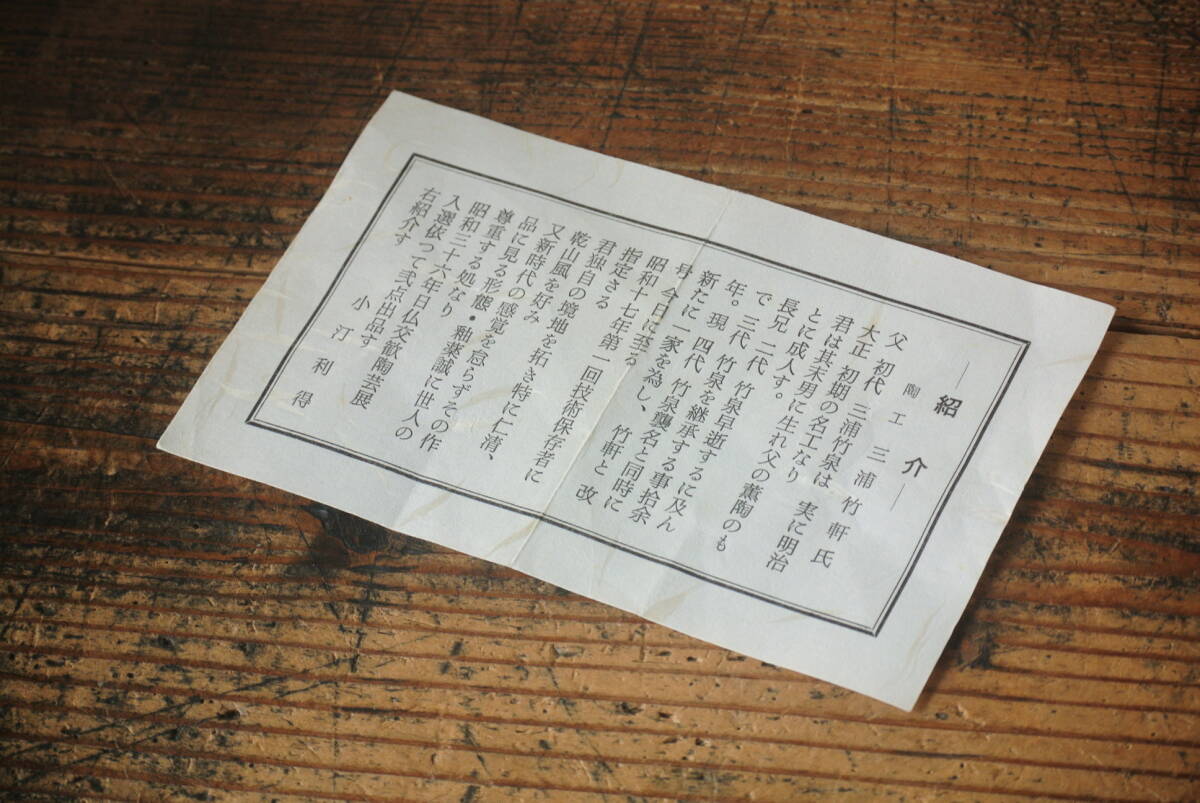 ―紹介―
陶工 三浦竹軒氏
父 初代 三浦竹泉は、実に明治
大正 初期の名工なり
君は其末男に生れ父の薫陶のも
とに成人す。
長兄 二代 竹泉早逝するに及ん
で、三代 竹泉を継承する事拾余
年。現 四代 竹泉襲名と同時に
新たに一家を為し、竹軒と改
号 今日に至る
昭和十七年第一回技術保存者に
指定さる
君独自の境地を拓き特に仁清、
乾山風を好み
又新時代の感覚を怠らずその作
品に見る形態・釉薬誠に世人の
尊重する処なり
昭和三十六年日仏交歓陶芸展
入選依つて弐点出品す
右紹介す
小汀利得